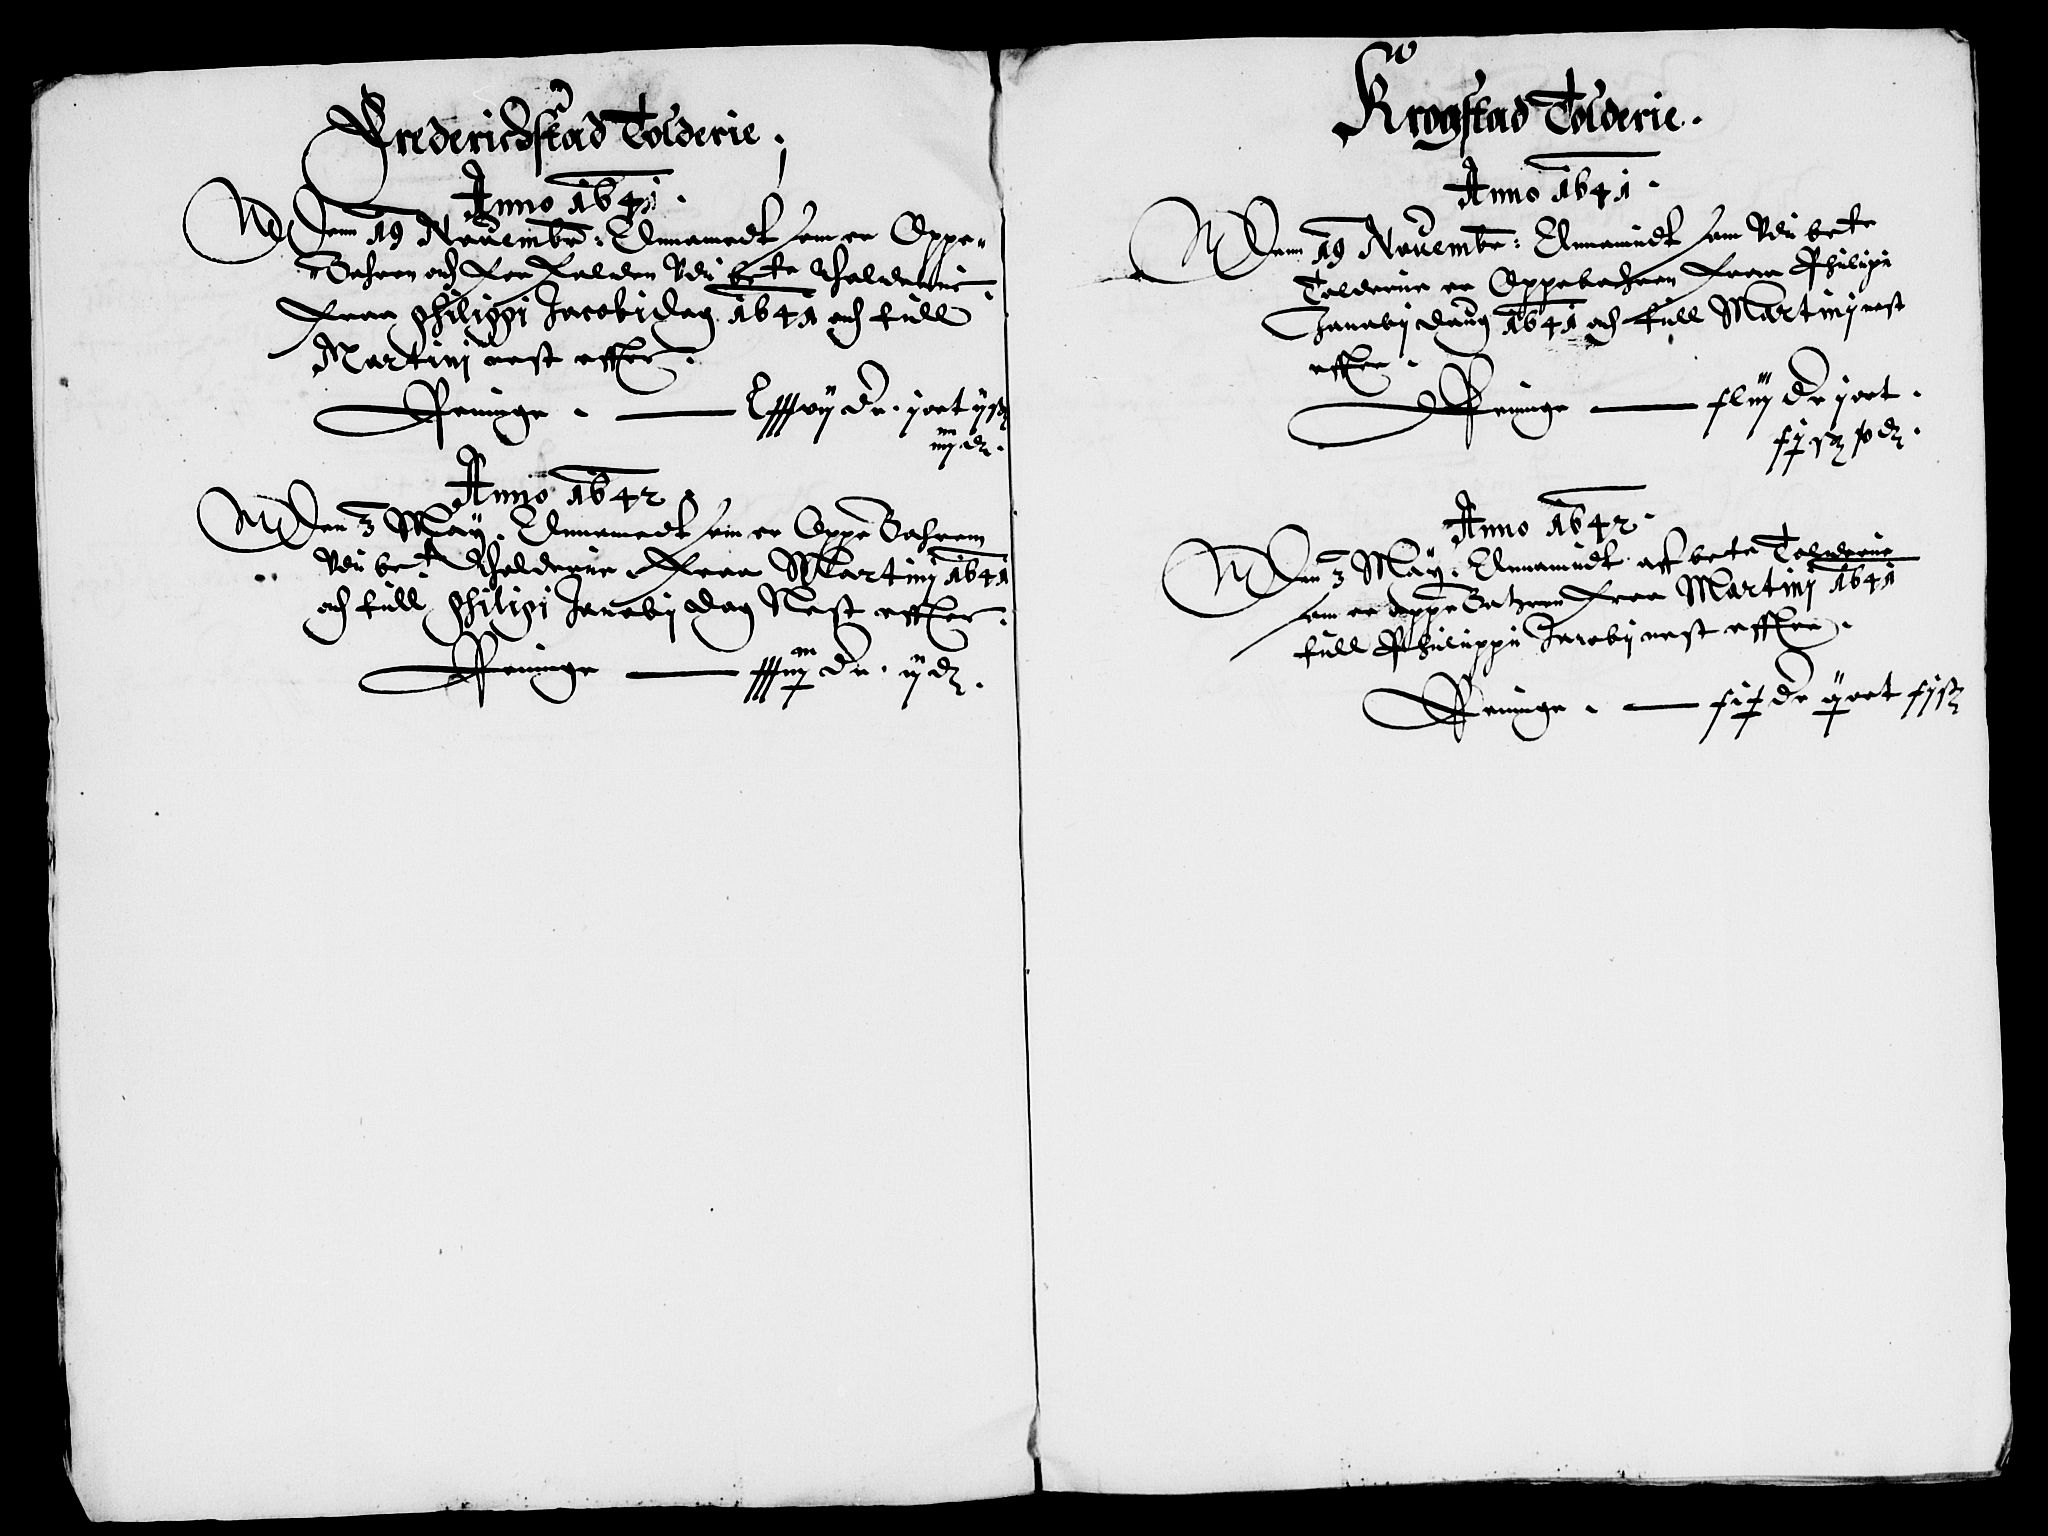 Frederichstad Tolderie.
Anno 1641.
Den 19 Nouembr: Annamedt som er Oppe-
Bahren och for falden Vdi bete Tholderie
fraa philippi Jacobi dag 1641 och till
Martinj nest effter.
Peninge. — dr. j ort ij ß
iiij d.
Anno 1642
Den 3 May. Annamedt som er Oppe Bahren
Vdi bete Tholderie fraa Martinj 1641
och till philipi Jacobij dag Nest effter.
Peninge — dr. ij d.
Krogstad Tolderie.
Anno 1641.
Den 19 Nouembr: Annamidt som Vdi bete
Tolderie er Oppebahren fraa Philipi
Jacobij daug 1641 och till Martinij nest
effter.
Peninge — dr j ort.
ß d.
Anno 1642.
Den 3 May. Annamidt aff bete Tolderie
som er oppe Bahren fraa Martinj 1641
till Philippi Jacobij nest effter.
Peninge. — dr ort ß